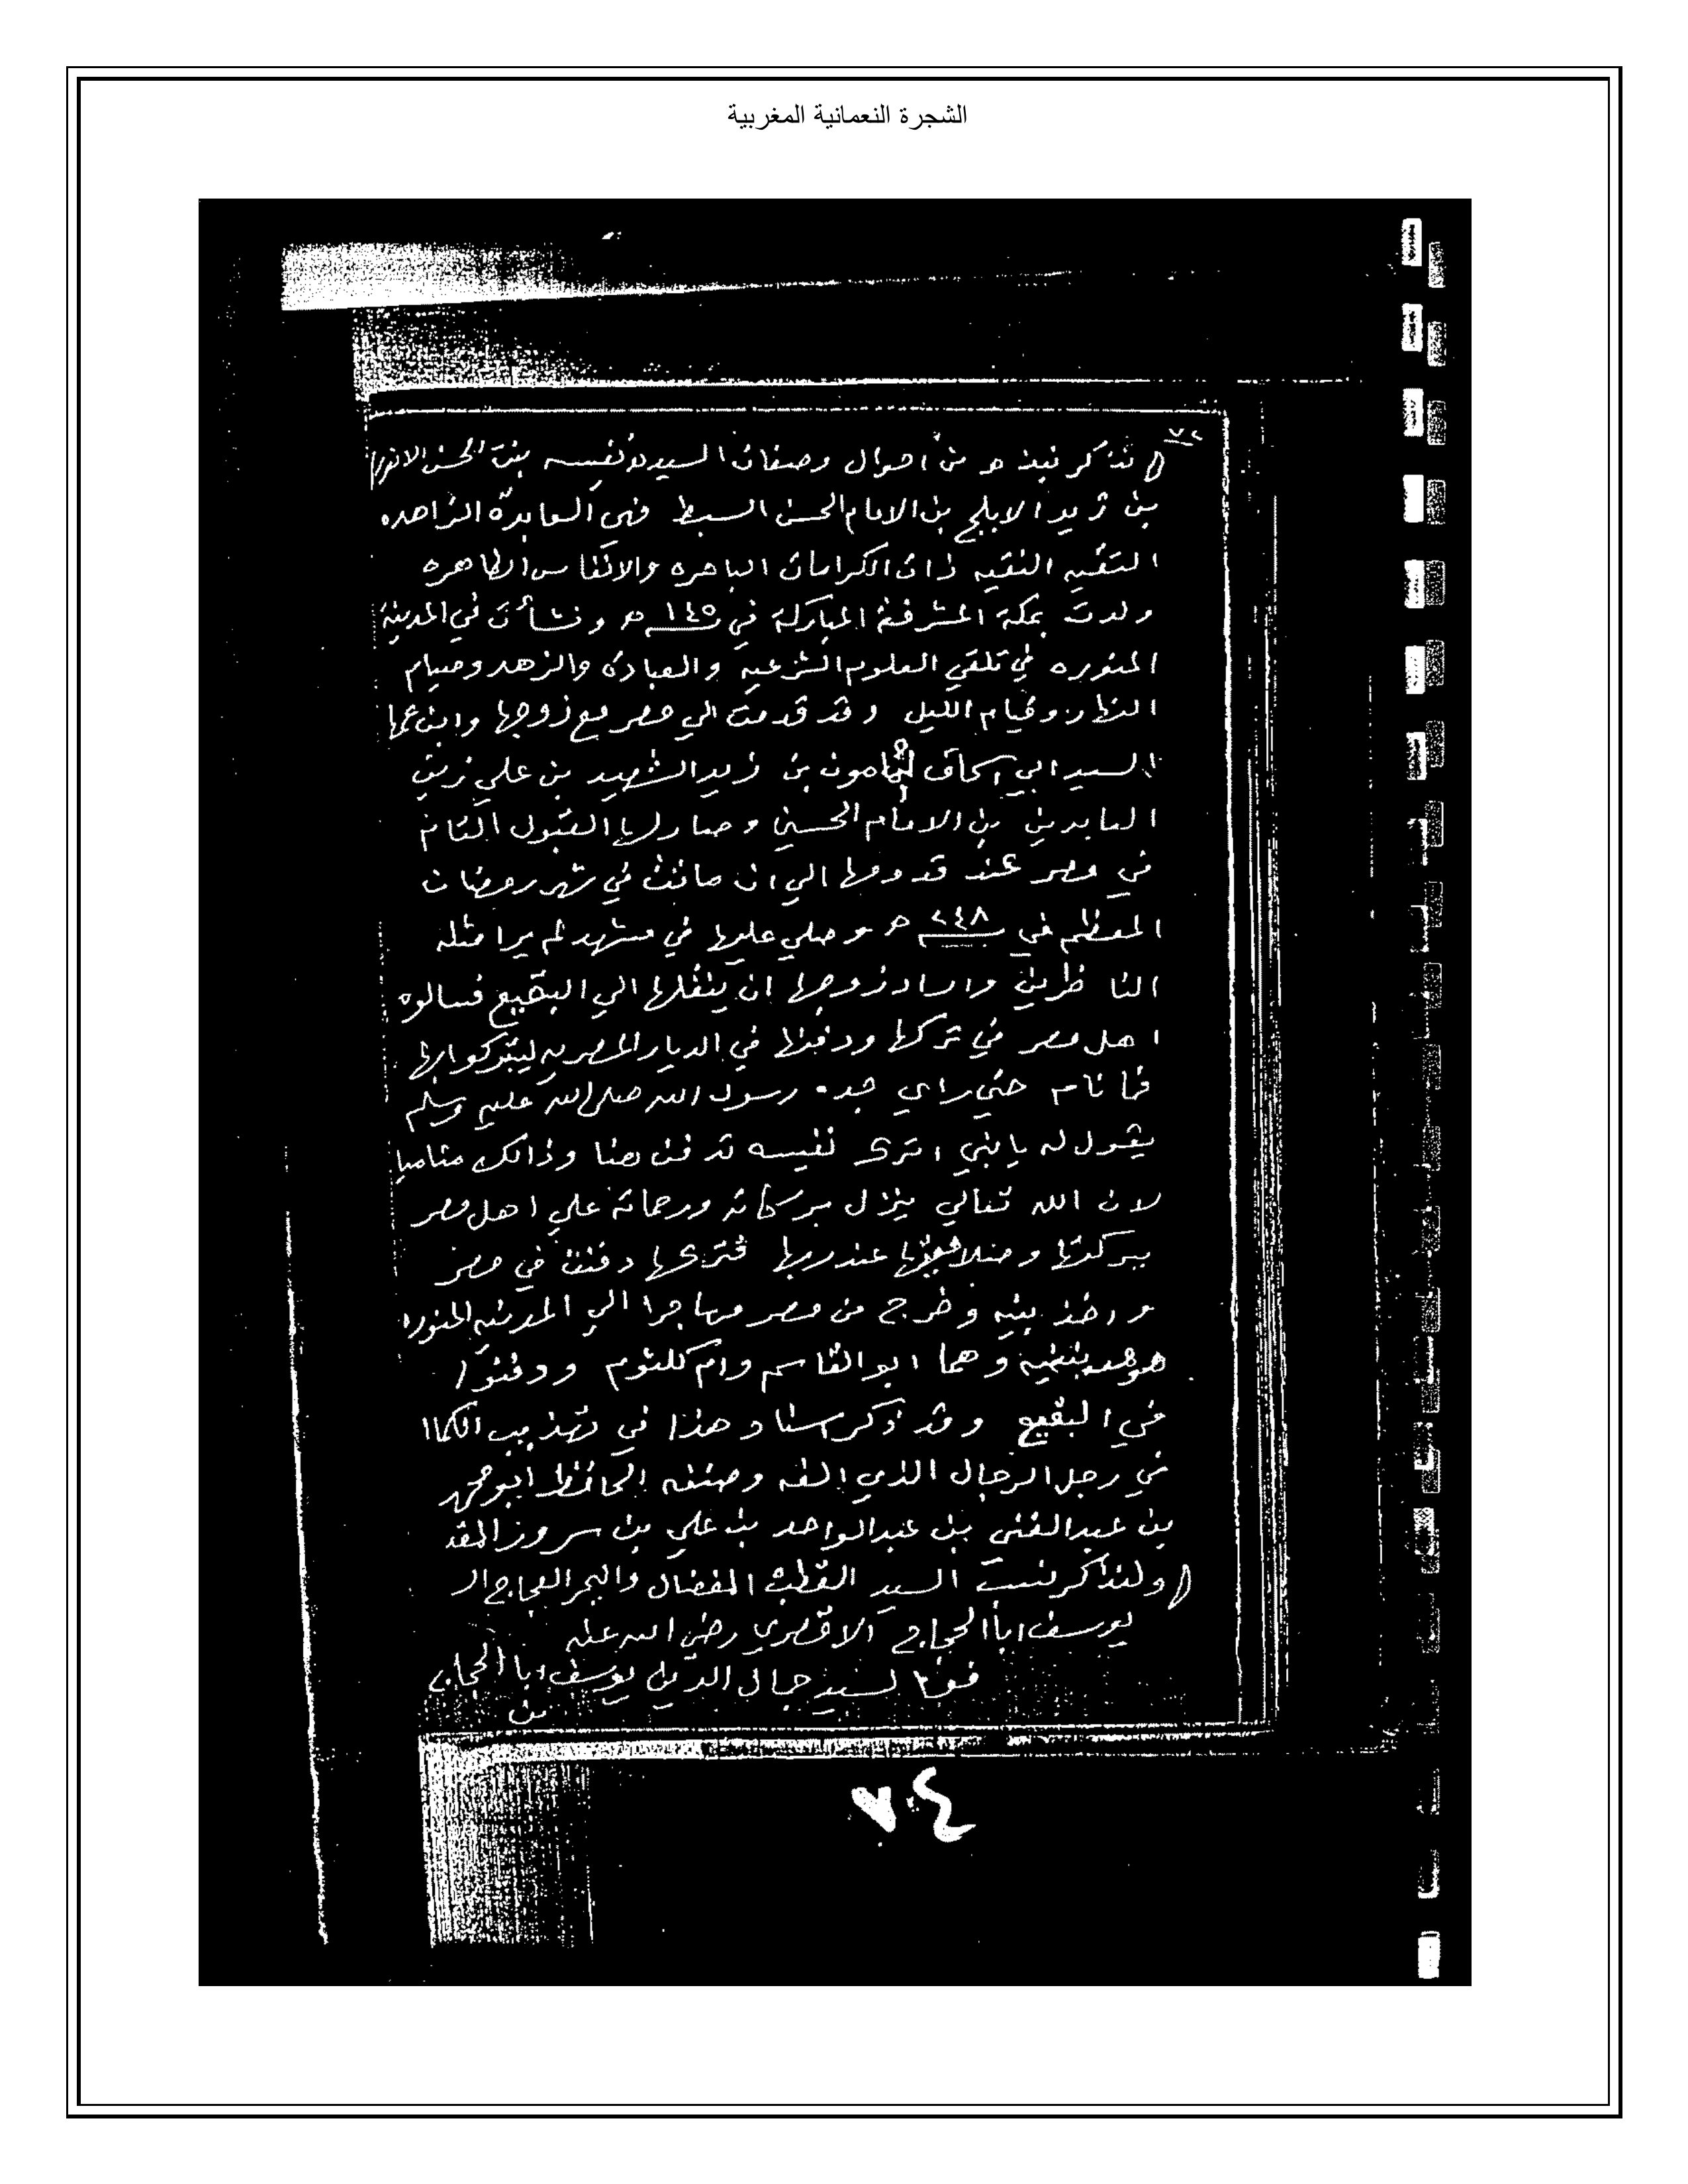 الشجرة النعمانية المغربية
٧٢
نذكر نبذه من احوال وصفات السيده نفيسه بنت الحسن الانور
بن زيد الابلج بن الامام الحسن السبط فهي العابدة الزاهده
التقيه النقيه ذات الكرامات الباهره والانفاس الطاهره
ولدت بمكة المشرفة المباركة في ١٤٥ هـ ونشأت في المدينة
المنوره في تلقي العلوم الشرعيه والعبادة والزهد وصيام
النهار وقيام الليل وقد قدمت الي مصر مع زوجها وابن عمها
السيد ابي اسحاق المامون بن زيد الشهيد بن علي زين
العابدين بن الامام الحسين وصار لها القبول التام
في مصر عند قدومها الي ان ماتت في شهر رمضان
المعظم في ٢٤٨ هـ وصلي عليها في مشهد لم يرا مثله
الناظرين واراد زوجها ان ينقلها الي البقيع فسالوه
اهل مصر في تركها ودفنها في الديار المصريه ليتبركوا بها
فما نام حتي راي جده رسول الله صلى الله عليه وسلم
يقول له يابني اترك نفيسه تدفن هنا وذالك مناميا
لان الله تعالي ينزل بركاته ورحماته علي اهل مصر
ببركتها عند ربها فتركها دفنت في مصر
واخذ بنيه وخرج من مصر مهاجرا الي المدينه المنوره
وهما ابو القاسم وام كلثوم ودفنوا
في البقيع وقد ذكر اسناد هذا في تهذيب الكما
في رجل الرجال الذي الفه وصنفه الحافظ ابو محمد
بن عبد الغني بن عبد الواحد بن علي بن سرور المقد
ولنذكر نسب السيد القطب المفضال والبحر العجاج الـ
يوسف ابا الحجاج الاقصري رضي الله عنه
فهو السيد جمال الدين يوسف ابا الحجاج
بن
٧٤